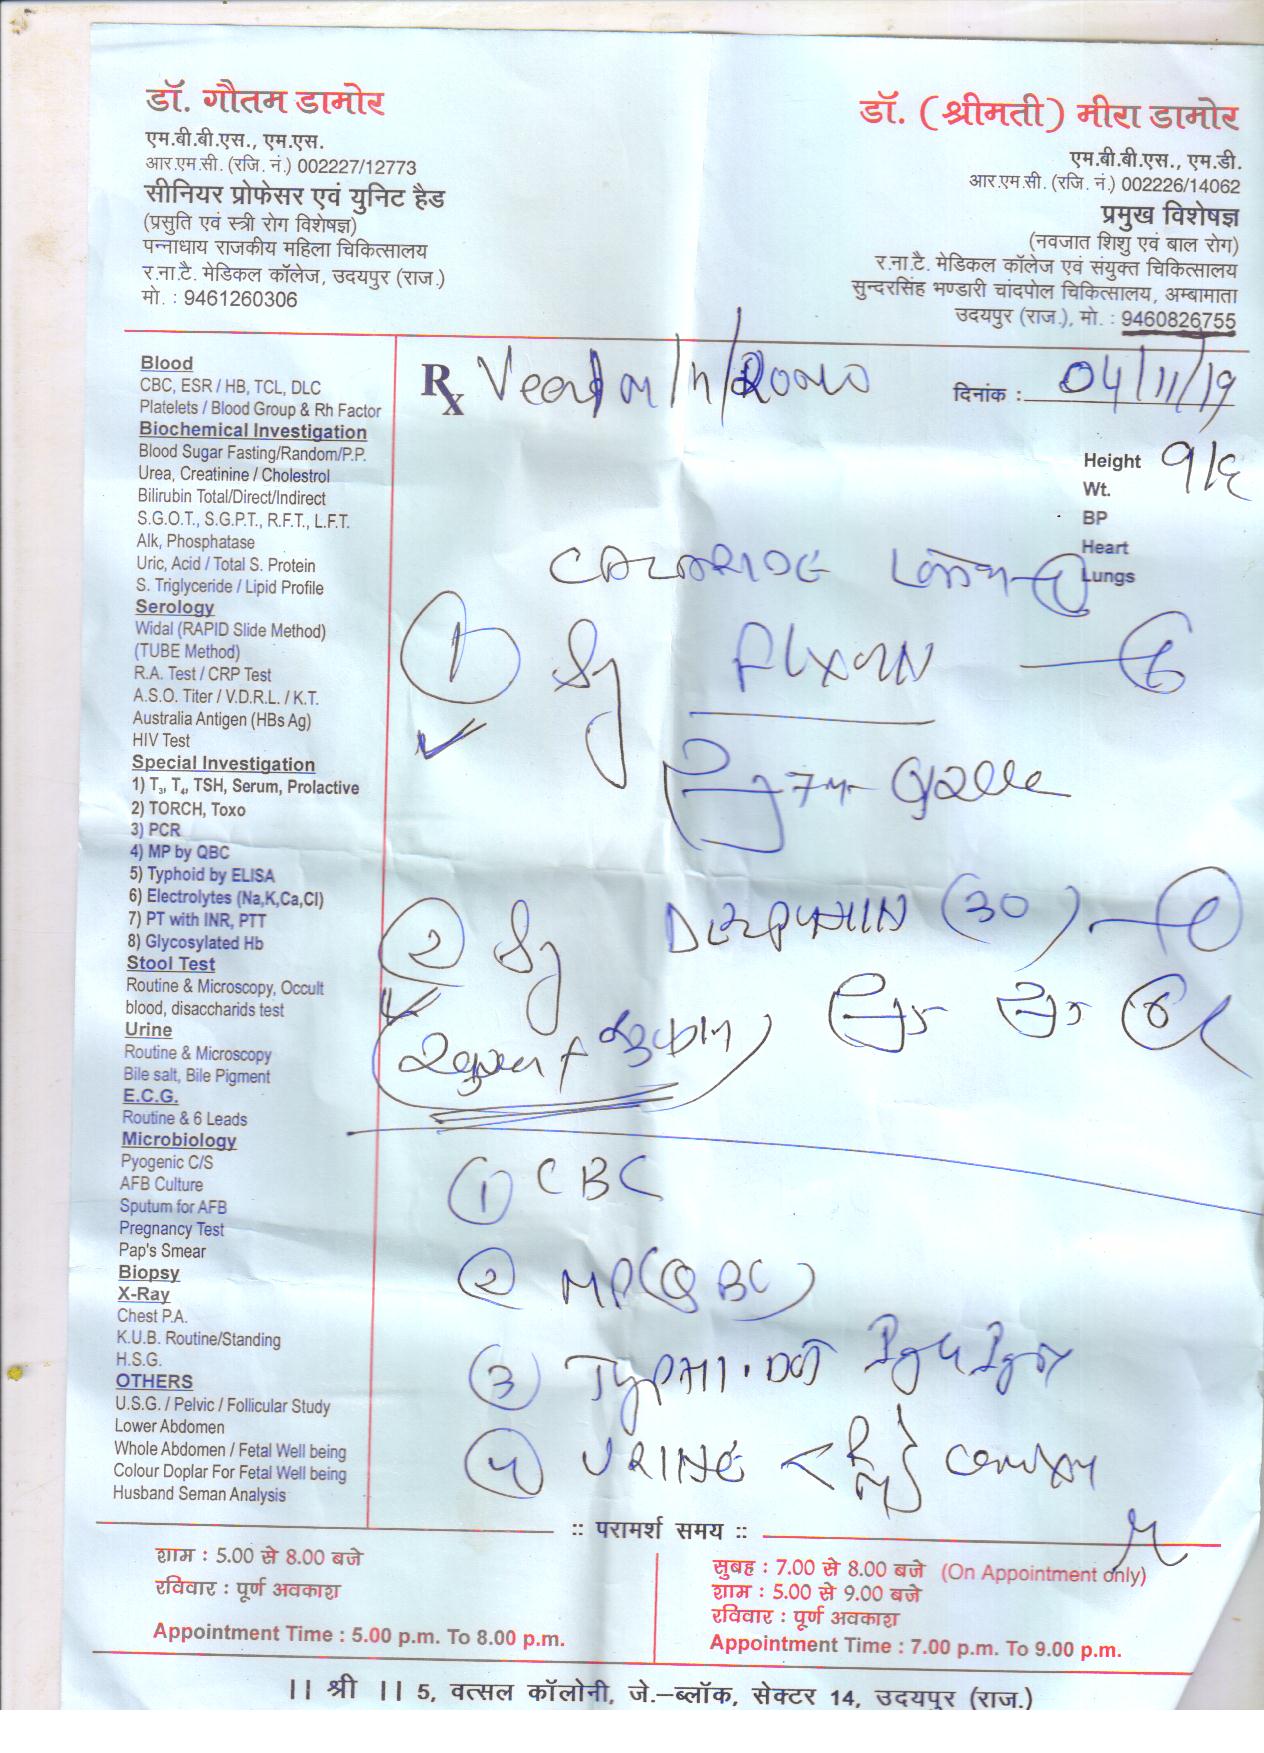 डॉ. गौतम डामोर
एम.बी.बी.एस., एम.एस.
आर.एम.सी. (रजि. नं.) 002227/12773
सीनियर प्रोफेसर एवं युनिट हैड
(प्रसुति एवं स्त्री रोग विशेषज्ञ)
पन्नाधाय राजकीय महिला चिकित्सालय
र.ना.टै. मेडिकल कॉलेज, उदयपुर (राज.)
मो. : 9461260306
डॉ. (श्रीमती) मीरा डामोर
एम.बी.बी.एस., एम.डी.
आर.एम.सी. (रजि. नं.) 002226/14062
प्रमुख विशेषज्ञ
(नवजात शिशु एवं बाल रोग)
र.ना.टै. मेडिकल कॉलेज एवं संयुक्त चिकित्सालय
सुन्दरसिंह भण्डारी चांदपोल चिकित्सालय, अम्बामाता
उदयपुर (राज.), मो. : 9460826755
Blood
CBC, ESR / HB, TCL, DLC
Platelets / Blood Group & Rh Factor
Biochemical Investigation
Blood Sugar Fasting/Random/P.P.
Urea, Creatinine / Cholestrol
Bilirubin Total/Direct/Indirect
S.G.O.T., S.G.P.T., R.F.T., L.F.T.
Alk, Phosphatase
Uric, Acid / Total S. Protein
S. Triglyceride / Lipid Profile
Serology
Widal (RAPID Slide Method)
(TUBE Method)
R.A. Test / CRP Test
A.S.O. Titer / V.D.R.L. / K.T.
Australia Antigen (HBs Ag)
HIV Test
Special Investigation
1) T₃, T₄, TSH, Serum, Prolactive
2) TORCH, Toxo
3) PCR
4) MP by QBC
5) Typhoid by ELISA
6) Electrolytes (Na,K,Ca,Cl)
7) PT with INR, PTT
8) Glycosylated Hb
Stool Test
Routine & Microscopy, Occult
blood, disaccharids test
Urine
Routine & Microscopy
Bile salt, Bile Pigment
E.C.G.
Routine & 6 Leads
Microbiology
Pyogenic C/S
AFB Culture
Sputum for AFB
Pregnancy Test
Pap's Smear
Biopsy
X-Ray
Chest P.A.
K.U.B. Routine/Standing
H.S.G.
OTHERS
U.S.G. / Pelvic / Follicular Study
Lower Abdomen
Whole Abdomen / Fetal Well being
Colour Doplar For Fetal Well being
Husband Seman Analysis
Rx
दिनांक : 04/11/19
Height
Wt.
BP
Heart
Lungs
1 Sy
2 Sy (30)
1 CBC
2 MP(QBC)
3 TYPHI.DOT
4 URINE
:: परामर्श समय ::
शाम : 5.00 से 8.00 बजे
रविवार : पूर्ण अवकाश
Appointment Time : 5.00 p.m. To 8.00 p.m.
सुबह : 7.00 से 8.00 बजे (On Appointment only)
शाम : 5.00 से 9.00 बजे
रविवार : पूर्ण अवकाश
Appointment Time : 7.00 p.m. To 9.00 p.m.
।। श्री ।। 5, वत्सल कॉलोनी, जे.–ब्लॉक, सेक्टर 14, उदयपुर (राज.)